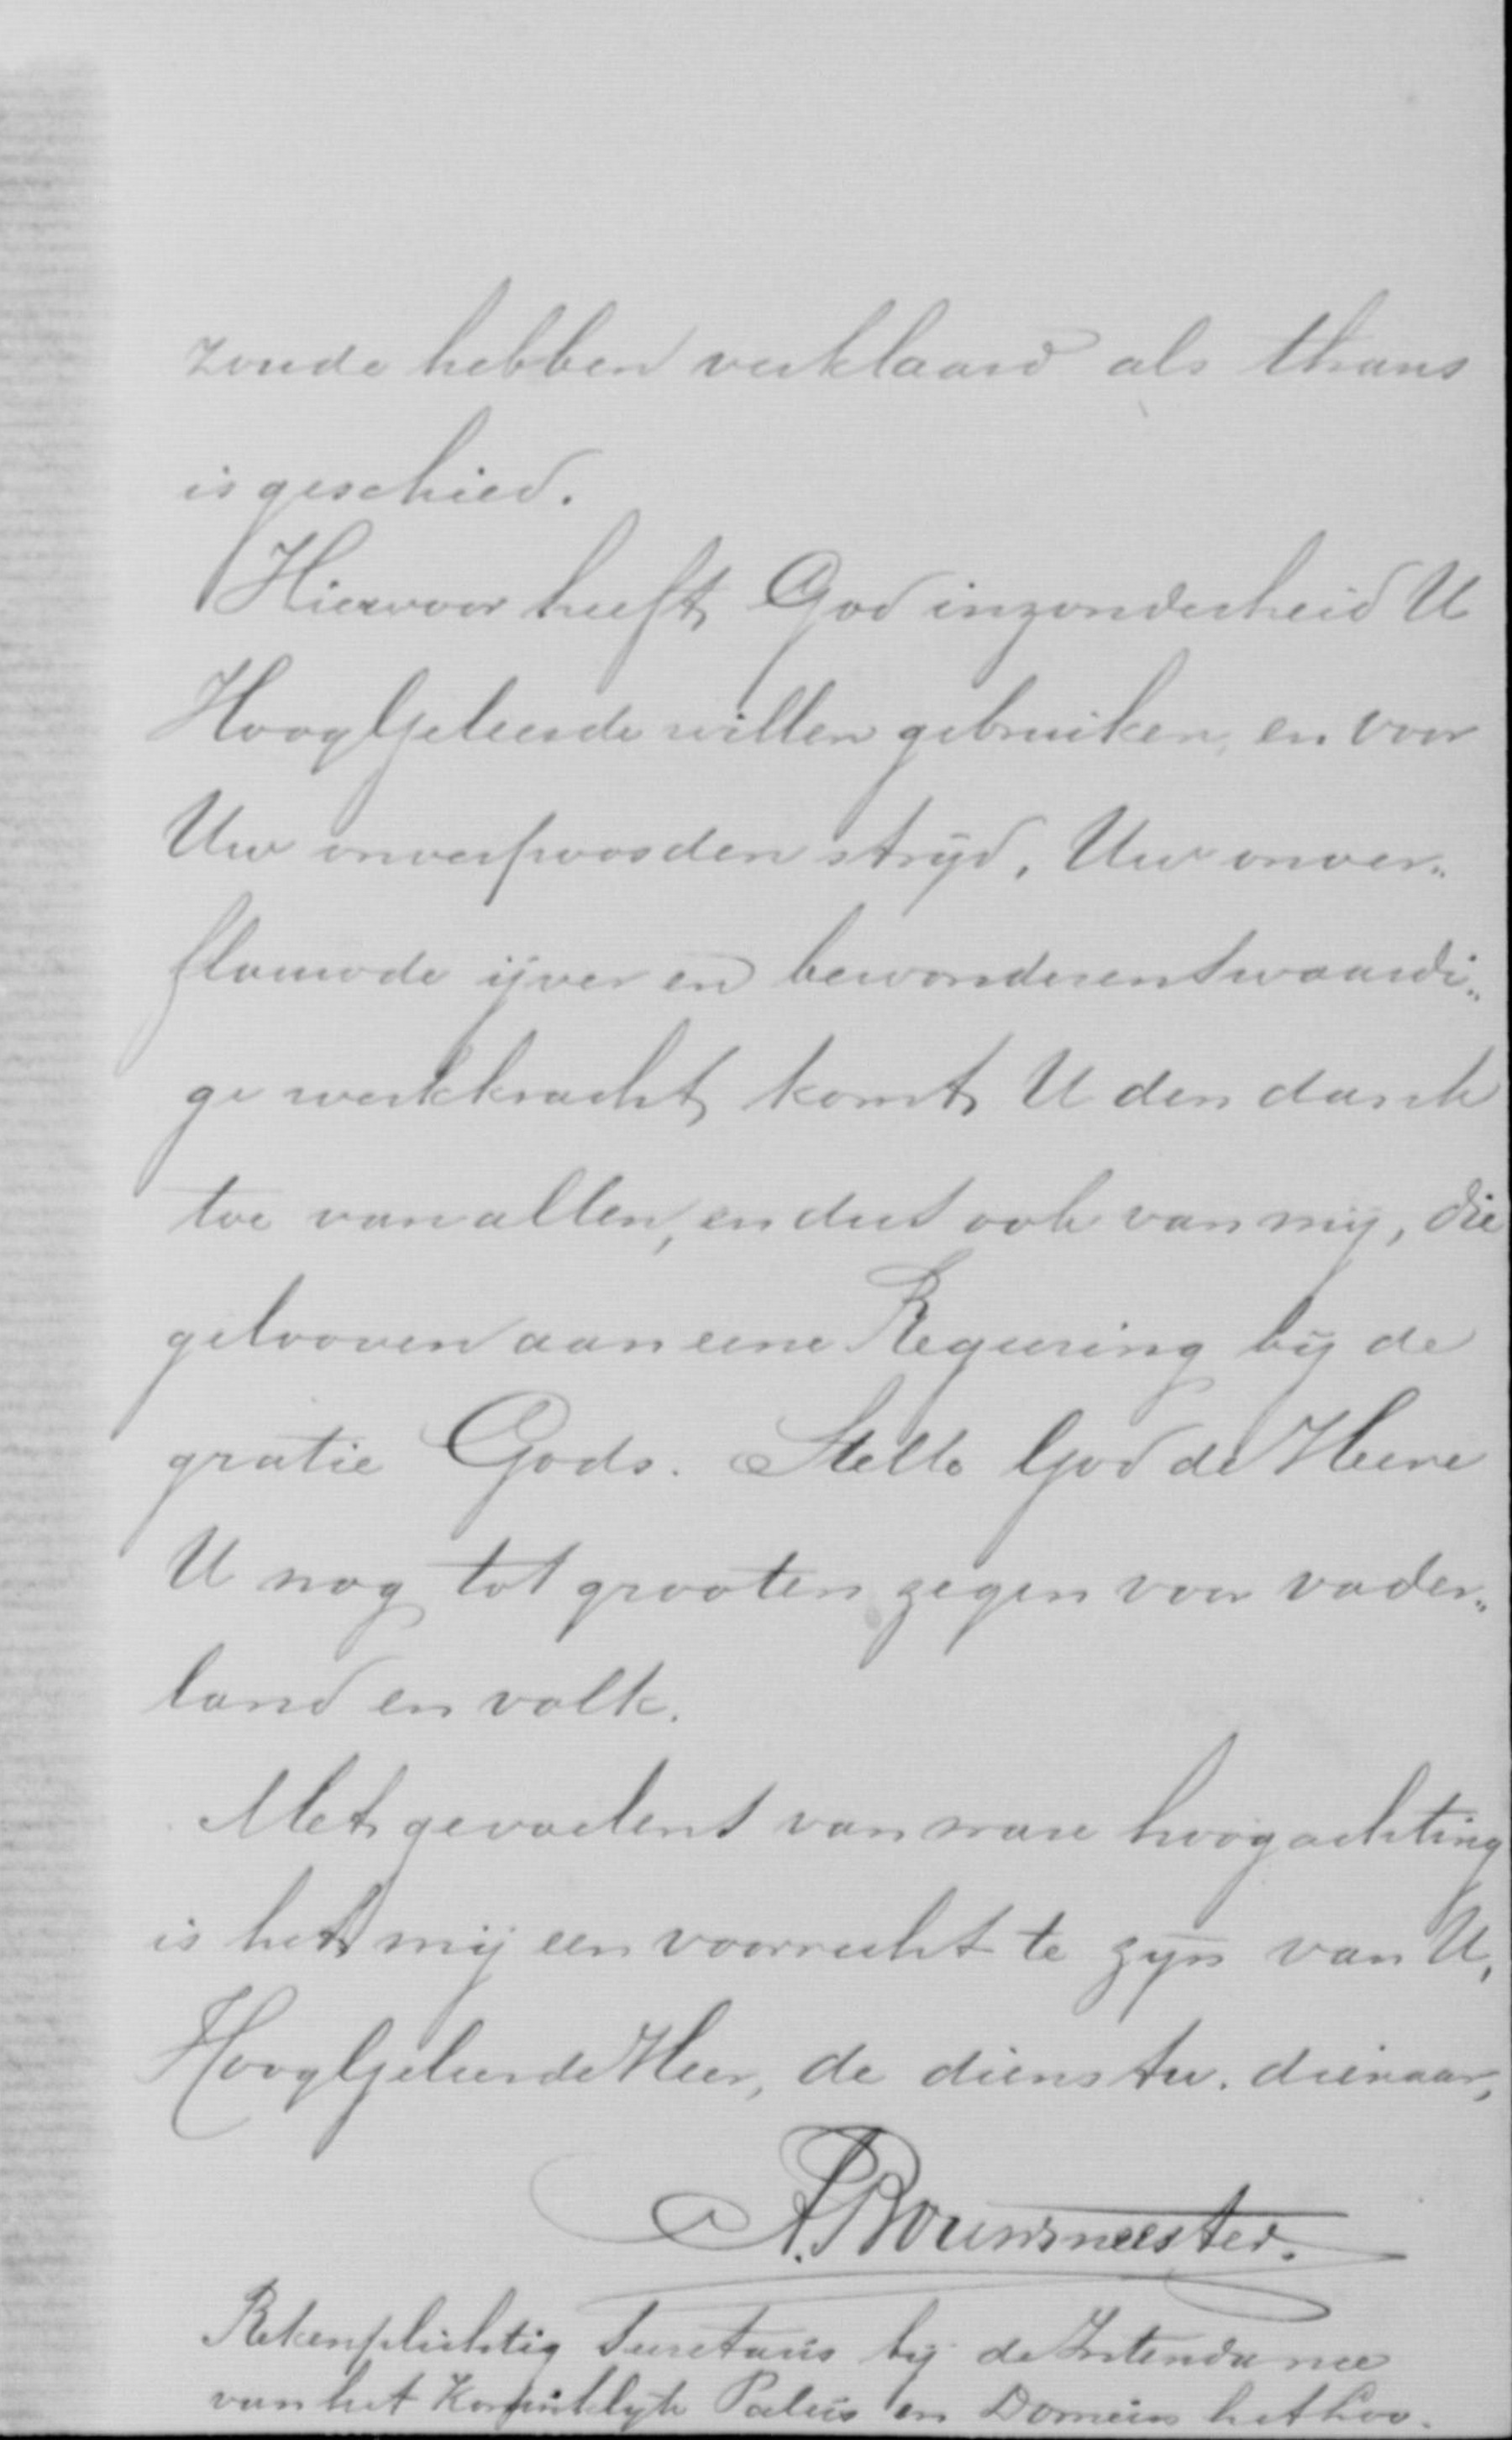 zoude hebben verklaard als thans
is geschied.
Hiervoor heeft God inzonderheid U
HoogGeleerde willen gebruiken, en voor
Uw onverpoosden strijd, Uw onver„
flauwde ijver en bewonderenswaardi„
ge werkkracht komt U den dank
toe van allen, en dus ook van mij, die
gelooven aan eene Regeering bij de
gratie Gods. Stelle God de Heere
U nog tot grooten zegen voor vader„
land en volk.
Met gevoelens van ware hoogachting
is het mij een voorrecht te zijn van U,
HoogGeleerde Heer, de dienstw. dienaar,
A. Bouwmeester.
Rekenplichtig Secretaris bij de Intendance
van het Koninklijk Paleis en Domein het Loo.